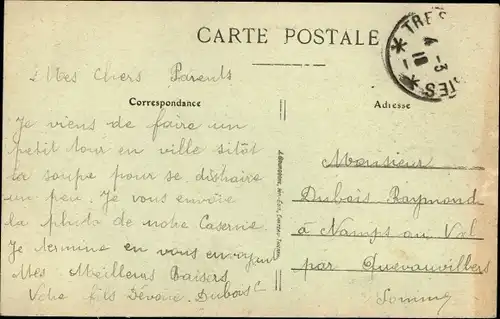 CARTE POSTALE
Mes Chers Parents
Correspondance
Je viens de faire un
petit tour en ville sitôt
la soupe pour se distraire
un peu. Je vous envoie
la photo de notre Caserne
Je termine en vous envoyant
Mes Meilleurs Baisers
Votre fils Dévoué. Dubois
Adresse
Monsieur
Dubois Raymond
à Namps au Val
par Quevauvillers
Somme
TRES
4 -3
18
TES